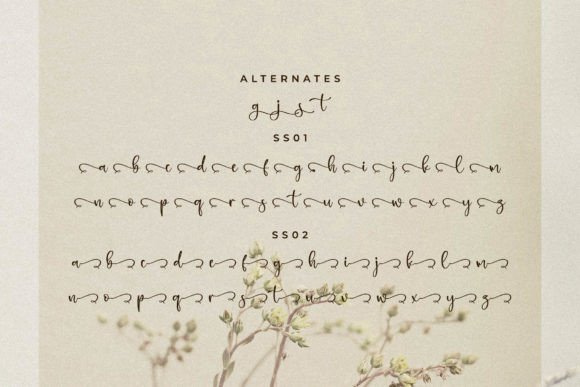 ALTERNATES
g j s t
SS01
a b c d e f g h i j k l m
n o p q r s t u v w x y z
SS02
a b c d e f g h i j k l m
n o p q r s t u v w x y z